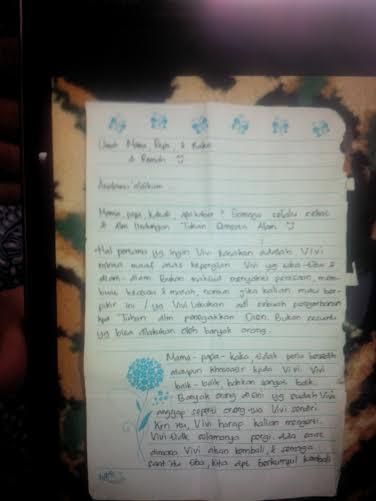 Untuk Mama, Papa, & Kakak
di Rumah
Assalamu'alaikum
Mama, papa, kakak, apa kabar? Semoga selalu sehat
& dlm lindungan Tuhan Semesta Alam.
Hal pertama yg ingin Vivi katakan adalah Vivi
minta maaf atas kepergian Vivi yg tiba-tiba &
diam-diam. Bukan maksud menyakiti perasaan, mem-
buat kecewa & marah, namun jika kalian mau ber-
pikir ini / yg Vivi lakukan adl sebuah pengorbanan
kpd Tuhan dlm penegakkan Dien. Bukan sesuatu
yg bisa dilakukan oleh banyak orang.
Mama-papa-kaka tidak perlu bersedih
ataupun khawatir kpada Vivi. Vivi
baik-baik, bahkan sangat baik.
Banyak orang disini yg sudah Vivi
anggap seperti orang-tua Vivi sendiri.
Krn itu, Vivi harap kalian mengerti.
Vivi tidak selamanya pergi. Ada saat
dimana Vivi akan kembali, & semoga
saat itu tiba, kita dpt berkumpul kembali